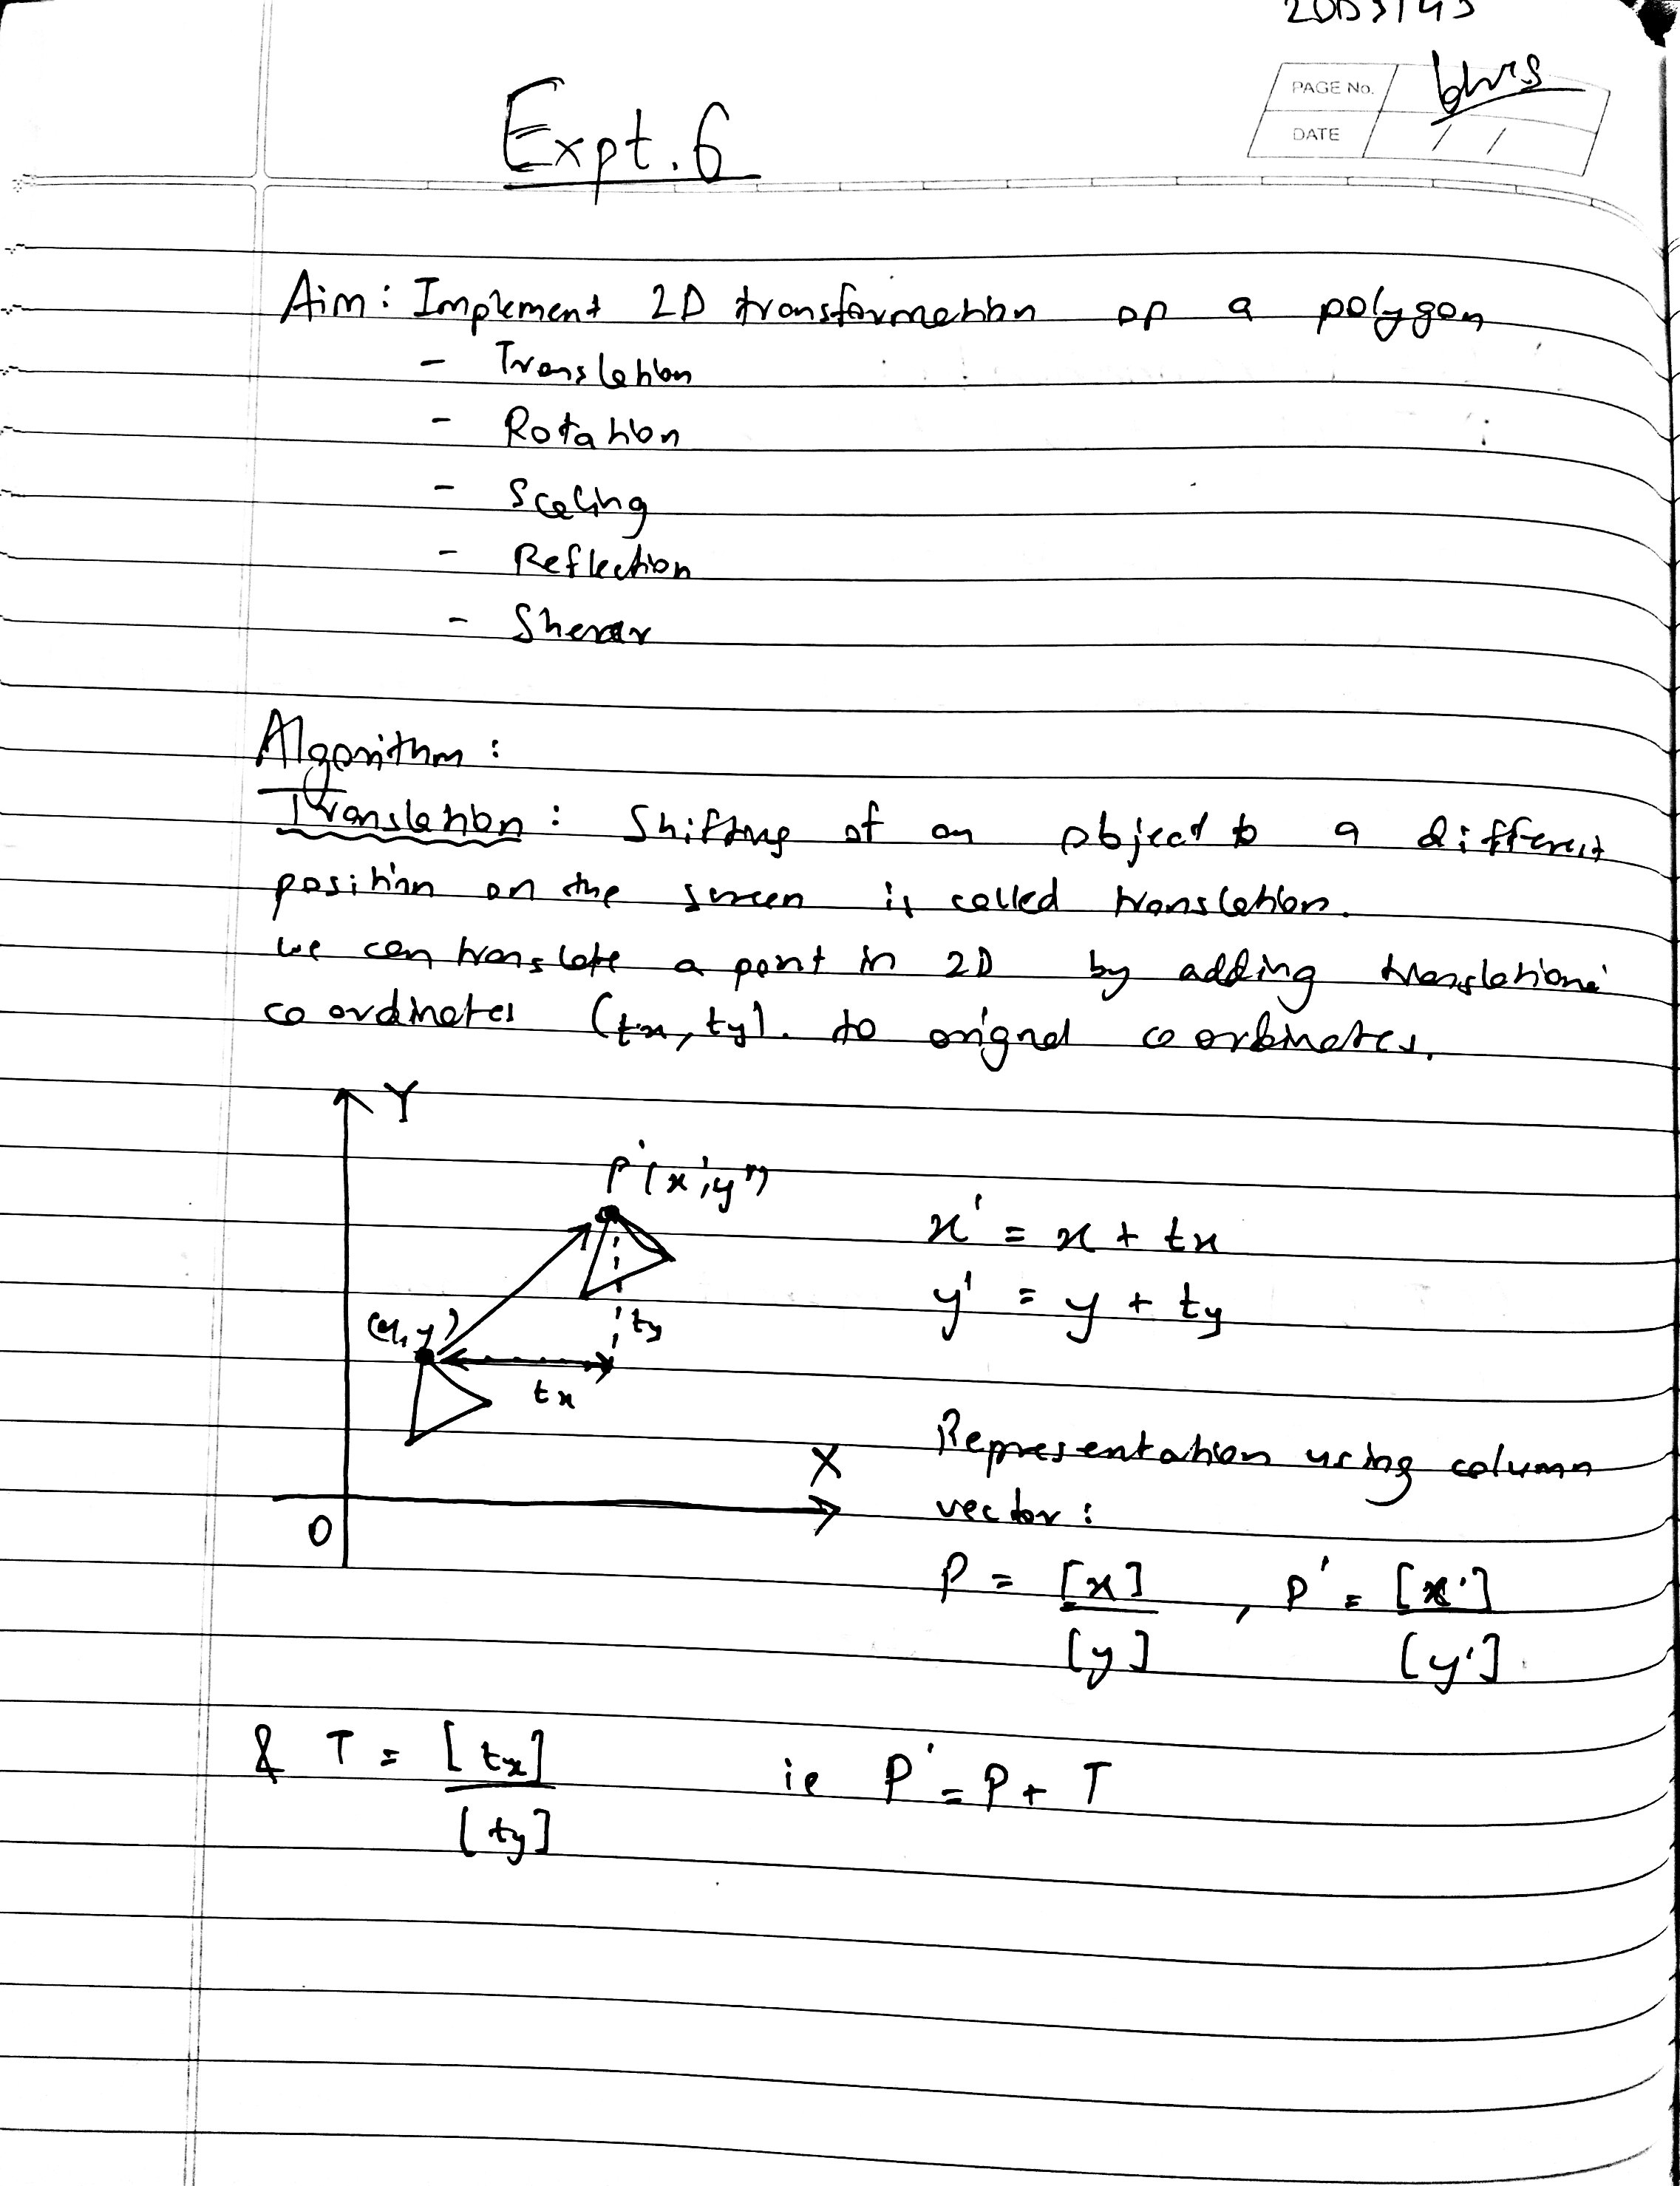 PAGE No.
DATE / /
Expt. 6
Aim: Implement 2D transformation on a polygon
- Translation
- Rotation
- Scaling
- Reflection
- Shear
Algorithm :
Translation : Shifting of an object to a different
position on the screen is called translation.
we can translate a point in 2D by adding translational
coordinates (tx, ty). to orignal coordinates.
Y
P'(x', y')
x' = x + tx
y' = y + ty
(x, y)
ty
tx
Representation using column
X
vector :
O
P = [x] , P' = [x']
[y] [y']
& T = [tx] ie P' = P + T
[ty]